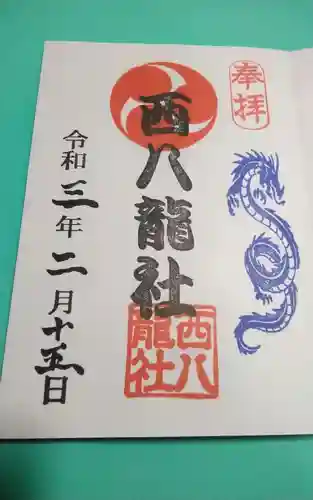 奉拝
西八龍社
西八
龍社
令和三年二月十五日